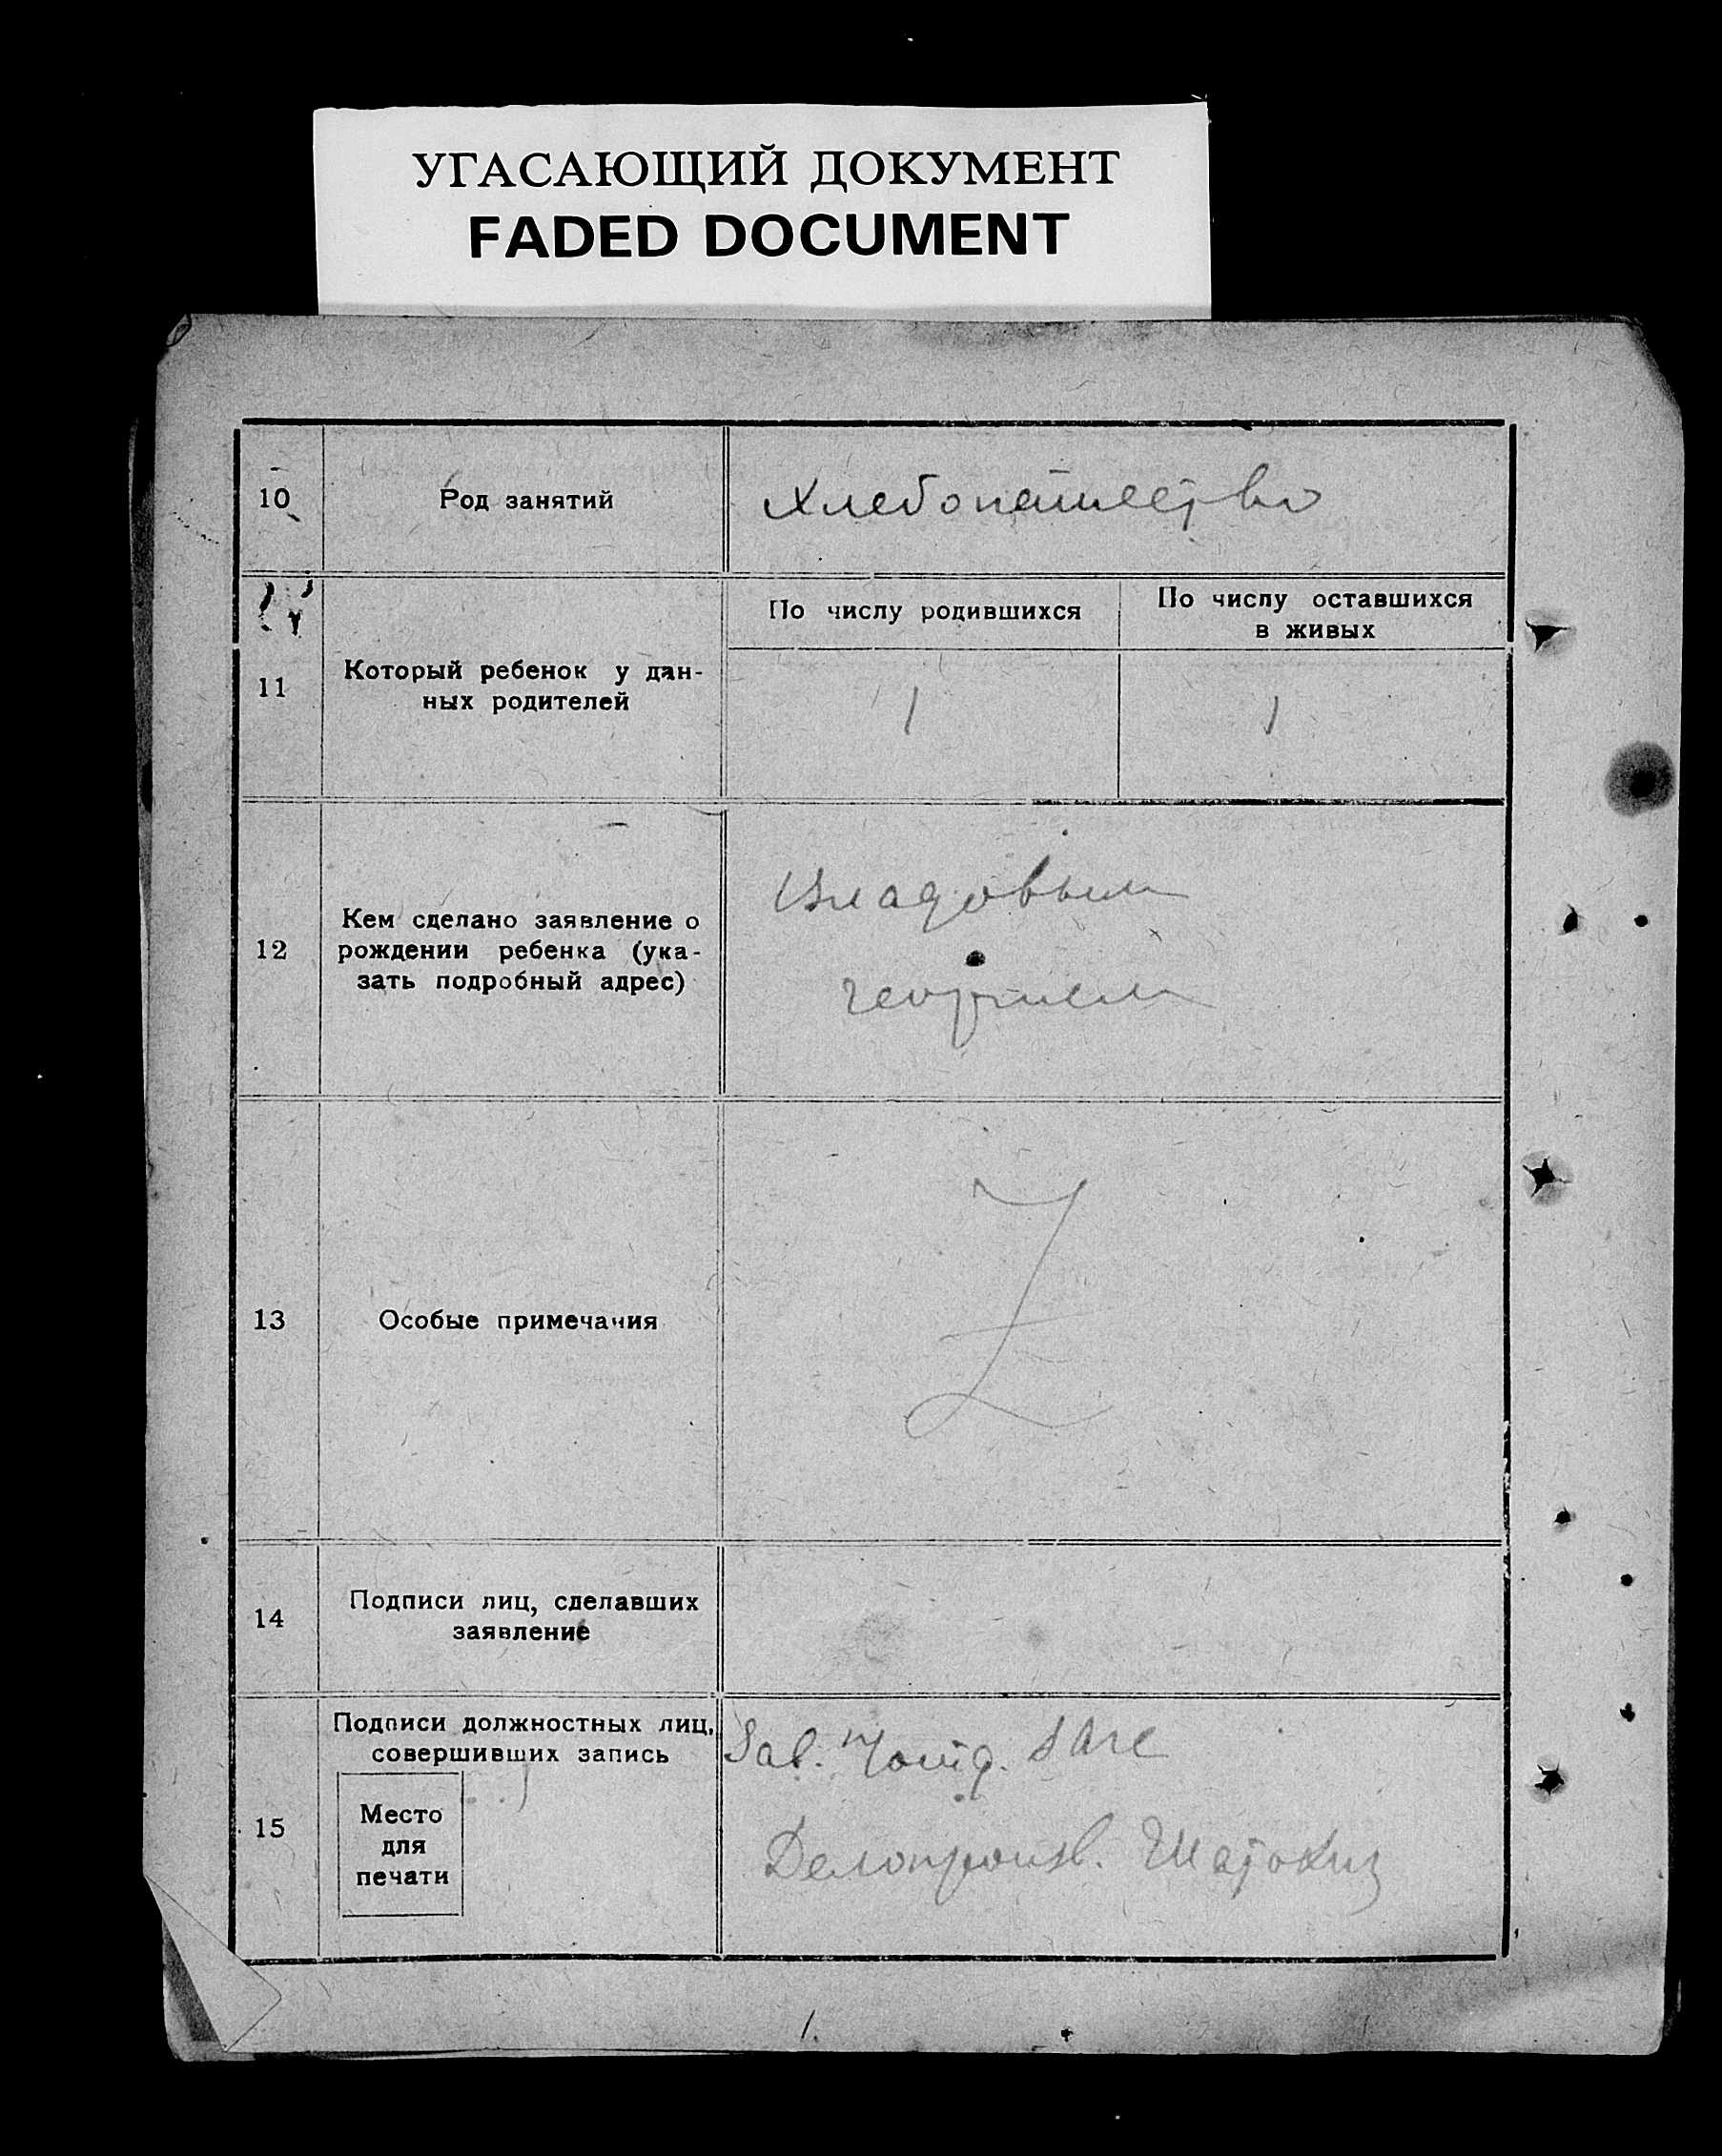 УГАСАЮЩИЙ ДОКУМЕНТ
FADED DOCUMENT
10
Род занятий
Хлебопашество
11
Который ребенок у дан-
ных родителей
По числу родившихся
По числу оставшихся
в живых
1
1
12
Кем сделано заявление о
рождении ребенка (ука-
зать подробный адрес)
Владовым
Георгием
13
Особые примечания
Z
14
Подписи лиц, сделавших
заявление
15
Подписи должностных лиц,
совершивших запись
Место
для
печати
Зав.
Делопроизв.